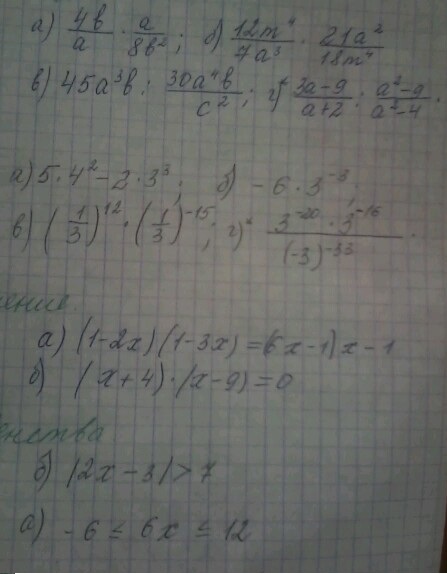 а) 4b/a · a/8b²; б) 12m⁴/7a³ · 21a²/18m⁴
в) 45a³b : 30a⁴b/c²; г)* 3a-9/a+2 : a²-9/a²-4.
а) 5·4²-2·3³; б) -6·3⁻³;
в) (1/3)¹²·(1/3)⁻¹⁵; г)* 3⁻²⁰·3⁻¹⁶/(-3)⁻³³.
ение
а) (1-2x)(1-3x)=(6x-1)x-1
б) (x+4)·(x-9)=0
енства
б) |2x-3|>7
а) -6≤6x≤12